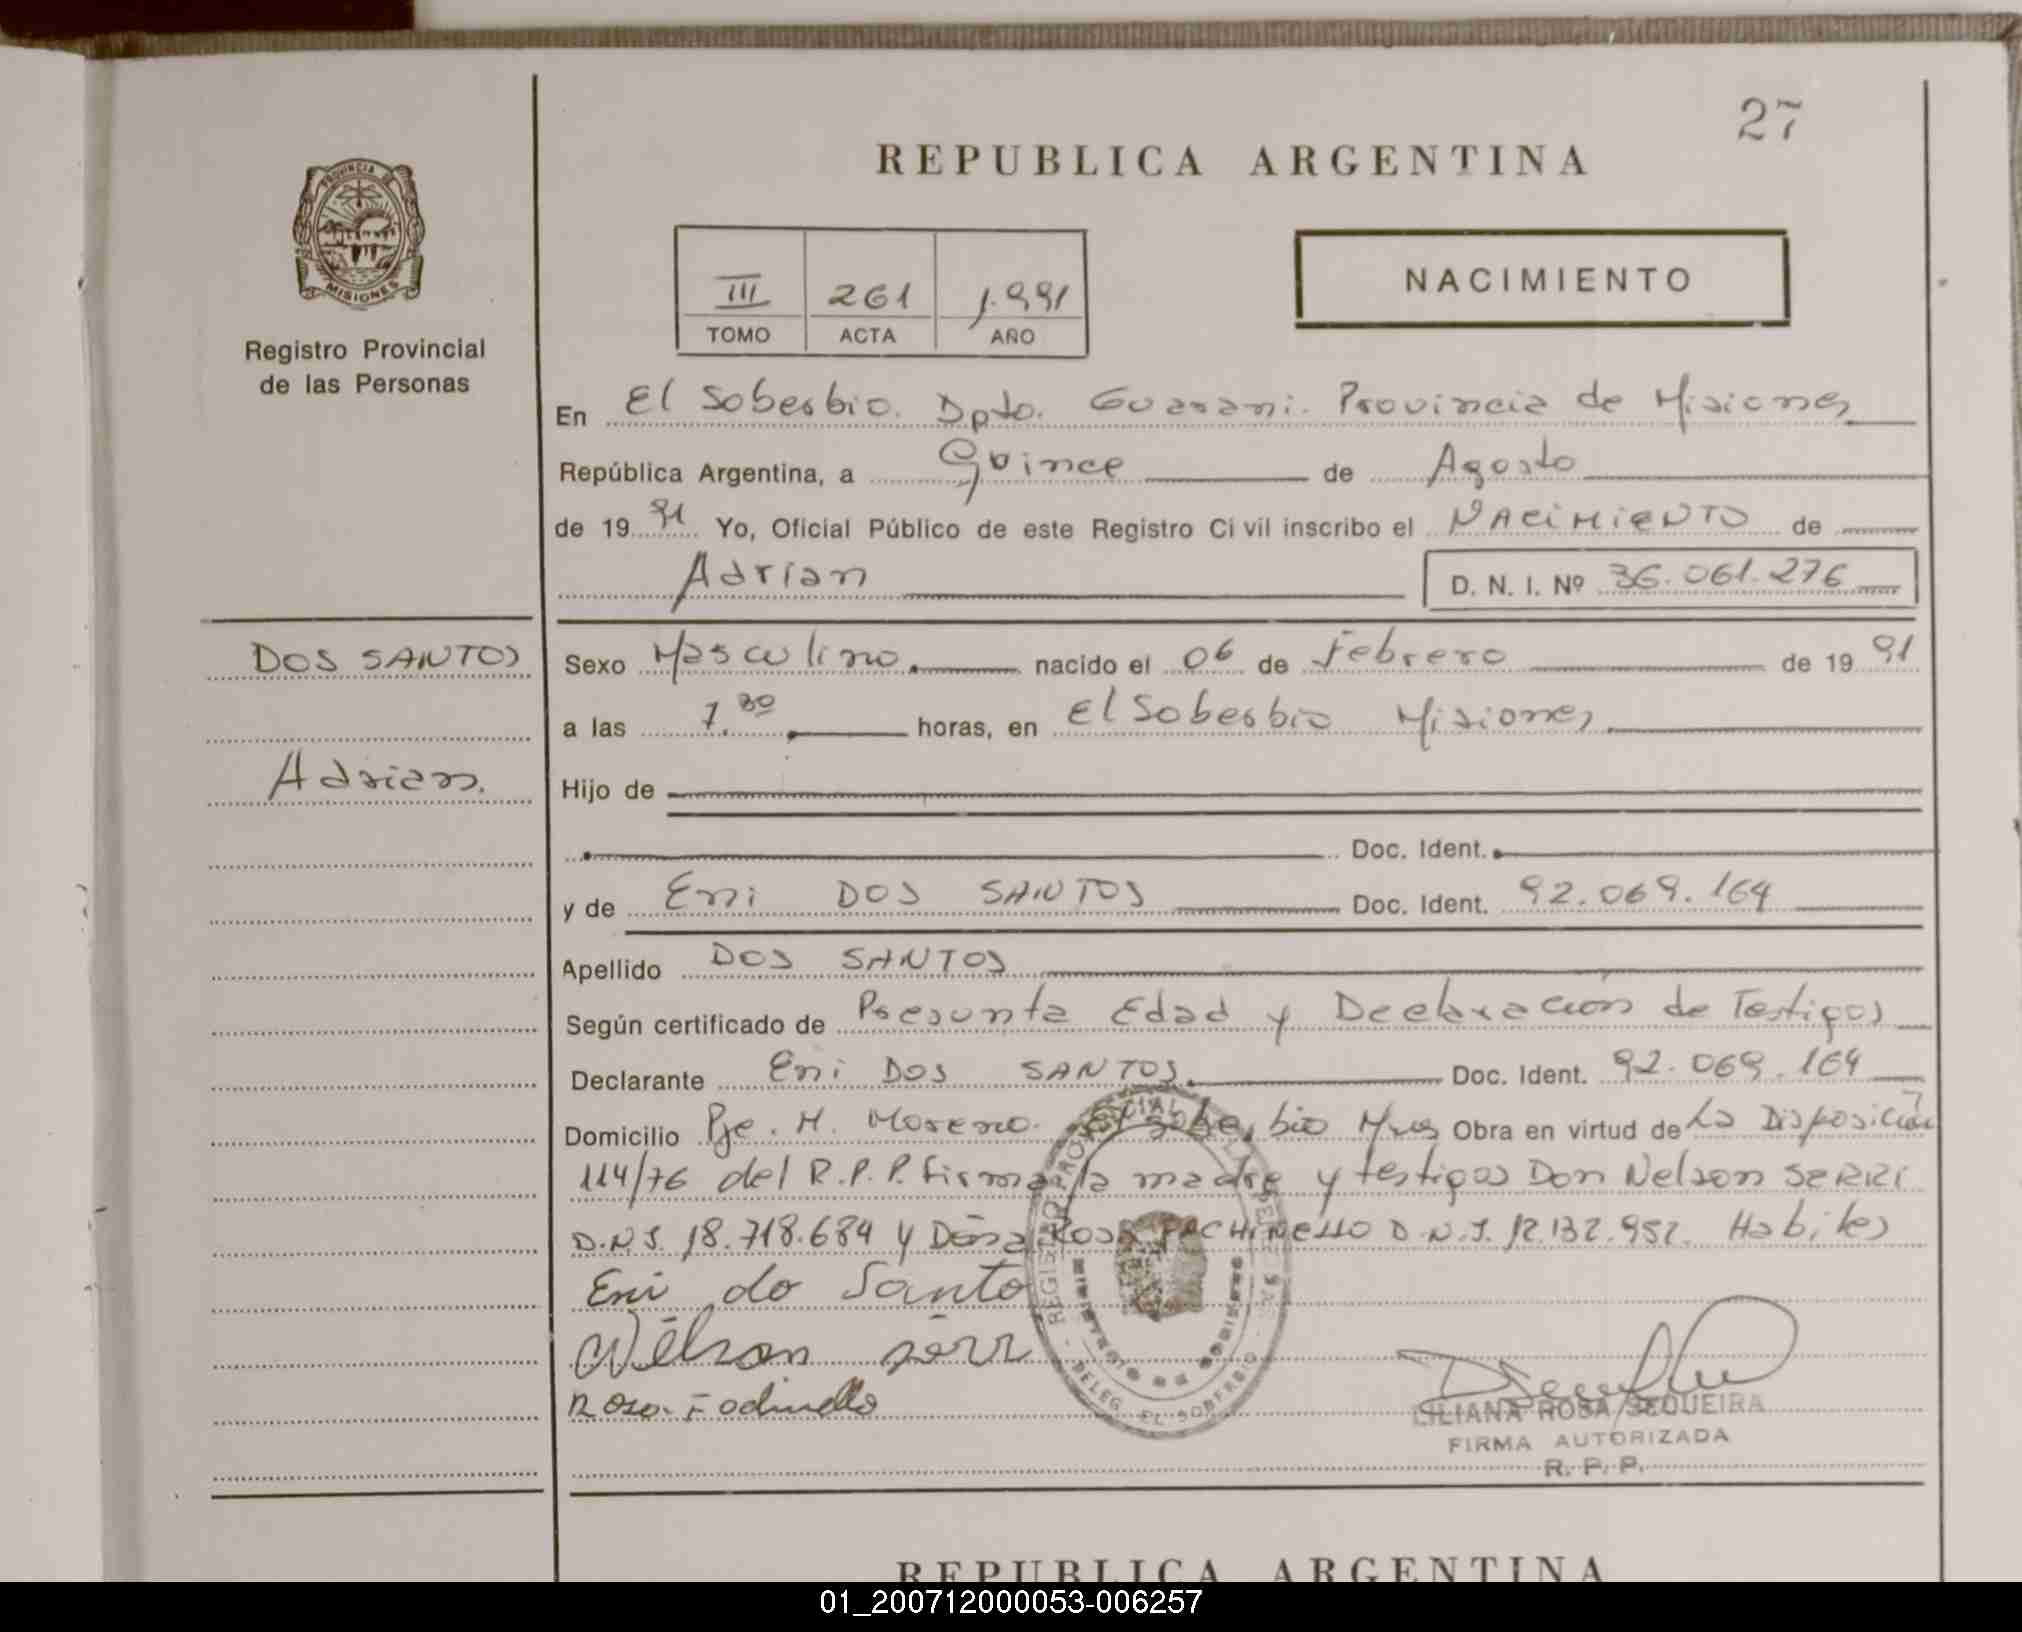 27
REPUBLICA ARGENTINA
PROVINCIA DE
MISIONES
Registro Provincial
de las Personas
III 261 1.991
TOMO ACTA AÑO
NACIMIENTO
En El Soberbio. Dpto. Guarani. Provincia de Misiones
República Argentina, a Quince de Agosto
de 19 91 Yo, Oficial Público de este Registro Civil inscribo el NACIMIENTO de
Adrian D. N. I. Nº 36.061.276
DOS SANTOS
Adrian.
Sexo Masculino. nacido el 06 de Febrero de 19 91
a las 7.30 horas, en El Soberbio Misiones
Hijo de
Doc. Ident.
y de Eni DOS SANTOS Doc. Ident. 92.069.164
Apellido DOS SANTOS
Según certificado de Presunta Edad y Declaración de Testigos
Declarante Eni DOS SANTOS. Doc. Ident. 92.069.164
Domicilio Pje. M. Moreno. El Soberbio Mnes Obra en virtud de La Disposición
114/76 del R.P.P. firma la madre y testigos Don Nelson SERRI
D.N.I. 18.718.684 y Doña Rosa D.N.I. 12.132.952. Habiles
Eni do Santo
Nelson serr
Rosa
REGISTRO PROVINCIAL DE LAS PERSONAS
DELEG. EL SOBERBIO
LILIANA ROSA SEQUEIRA
FIRMA AUTORIZADA
R. P. P.
REPUBLICA ARGENTINA
01_200712000053-006257